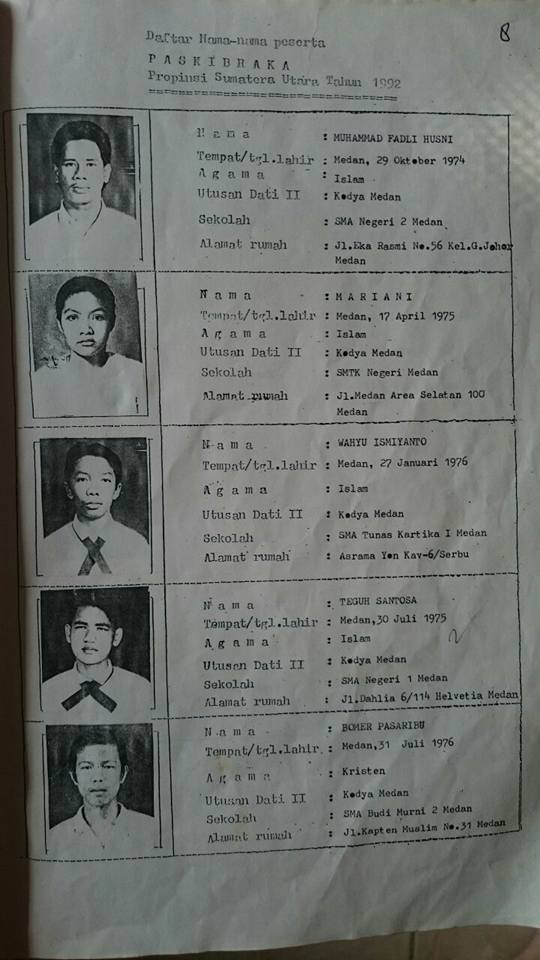 8
Daftar Nama-nama peserta
P A S K I B R A K A
Propinsi Sumatera Utara Tahun 1992
==================================
N a m a : MUHAMMAD FADLI HUSNI
Tempat/tgl.lahir : Medan, 29 Oktober 1974
A g a m a : Islam
Utusan Dati II : Kodya Medan
Sekolah : SMA Negeri 2 Medan
Alamat rumah : Jl.Eka Rasmi No.56 Kel.G.Johor
Medan
N a m a : M A R I A N I
Tempat/tgl.lahir : Medan, 17 April 1975
A g a m a : Islam
Utusan Dati II : Kodya Medan
Sekolah : SMTK Negeri Medan
Alamat rumah : Jl.Medan Area Selatan 100
Medan
N a m a : WAHYU ISMIYANTO
Tempat/tgl.lahir : Medan, 27 Januari 1976
A g a m a : Islam
Utusan Dati II : Kodya Medan
Sekolah : SMA Tunas Kartika I Medan
Alamat rumah : Asrama Yon Kav-6/Serbu
N a m a : TEGUH SANTOSA
Tempat/tgl.lahir : Medan,30 Juli 1975
A g a m a : Islam
Utusan Dati II : Kodya Medan
Sekolah : SMA Negeri 1 Medan
Alamat rumah : Jl.Dahlia 6/114 Helvetia Medan
N a m a : BOMER PASARIBU
Tempat/tgl.lahir : Medan,31 Juli 1976
A g a m a : Kristen
Utusan Dati II : Kodya Medan
Sekolah : SMA Budi Murni 2 Medan
Alamat rumah : Jl.Kapten Muslim No.31 Medan